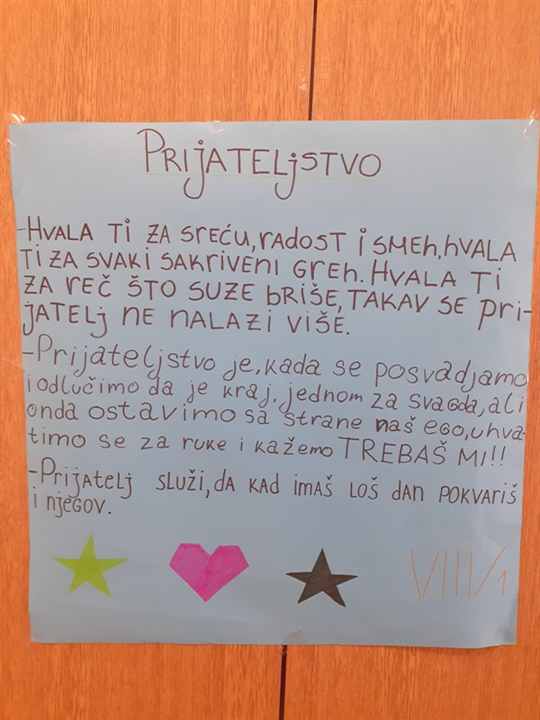 PRIJATELjSTVO
-HVALA TI ZA SREĆU, RADOST I SMEH, HVALA
TI ZA SVAKI SAKRIVENI GREH. HVALA TI
ZA REČ ŠTO SUZE BRIŠE, TAKAV SE PRI-
JATELJ NE NALAZI VIŠE.
-Prijateljstvo je, kada se posvadjamo
i odlučimo da je kraj, jednom za svagda, ali
onda ostavimo sa strane naš ego, uhva-
timo se za ruke i kažemo TREBAŠ MI!!
-Prijatelj služi, da kad imaš loš dan pokvariš
i njegov.
VIII/1